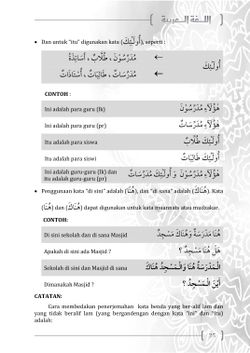 اللـغـة الـعـربيـة
• Dan untuk "itu" digunakan kata (أُولَٰئِكَ), seperti :
أُولَٰئِكَ ← مُدَرِّسُوْنَ ، طُلَّابٌ ، أَسَاتِذَةٌ
← مُدَرِّسَاتٌ ، طَالِبَاتٌ ، أُسْتَاذَاتٌ
CONTOH :
Ini adalah para guru (lk) هَٰؤُلَآءِ مُدَرِّسُوْنَ
Ini adalah para guru (pr) هَٰؤُلَآءِ مُدَرِّسَاتٌ
Itu adalah para siswa أُولَٰئِكَ طُلَّابٌ
Itu adalah para siswi أُولَٰئِكَ طَالِبَاتٌ
Ini adalah guru-guru (lk) dan هَٰؤُلَآءِ مُدَرِّسُوْنَ وَ أُولَٰئِكَ مُدَرِّسَاتٌ
itu adalah guru-guru (pr)
• Penggunaan kata "di sini" adalah (هُنَا), dan "di sana" adalah (هُنَاكَ). Kata
(هُنَا) dan (هُنَاكَ) dapat digunakan untuk kata muannats atau mudzakar.
CONTOH:
Di sini sekolah dan di sana Masjid هُنَا مَدْرَسَةٌ وَهُنَاكَ مَسْجِدٌ
Apakah di sini ada Masjid ? هَلْ هُنَا مَسْجِدٌ ؟
Sekolah di sini dan Masjid di sana الْمَدْرَسَةُ هُنَا وَالْمَسْجِدُ هُنَاكَ
Dimanakah Masjid ? أَيْنَ الْمَسْجِدُ ؟
CATATAN:
Cara membedakan penerjemahan kata benda yang ber-alif lam dan
yang tidak beralif lam (yang bergandengan dengan kata "ini" dan "itu)
adalah:
25